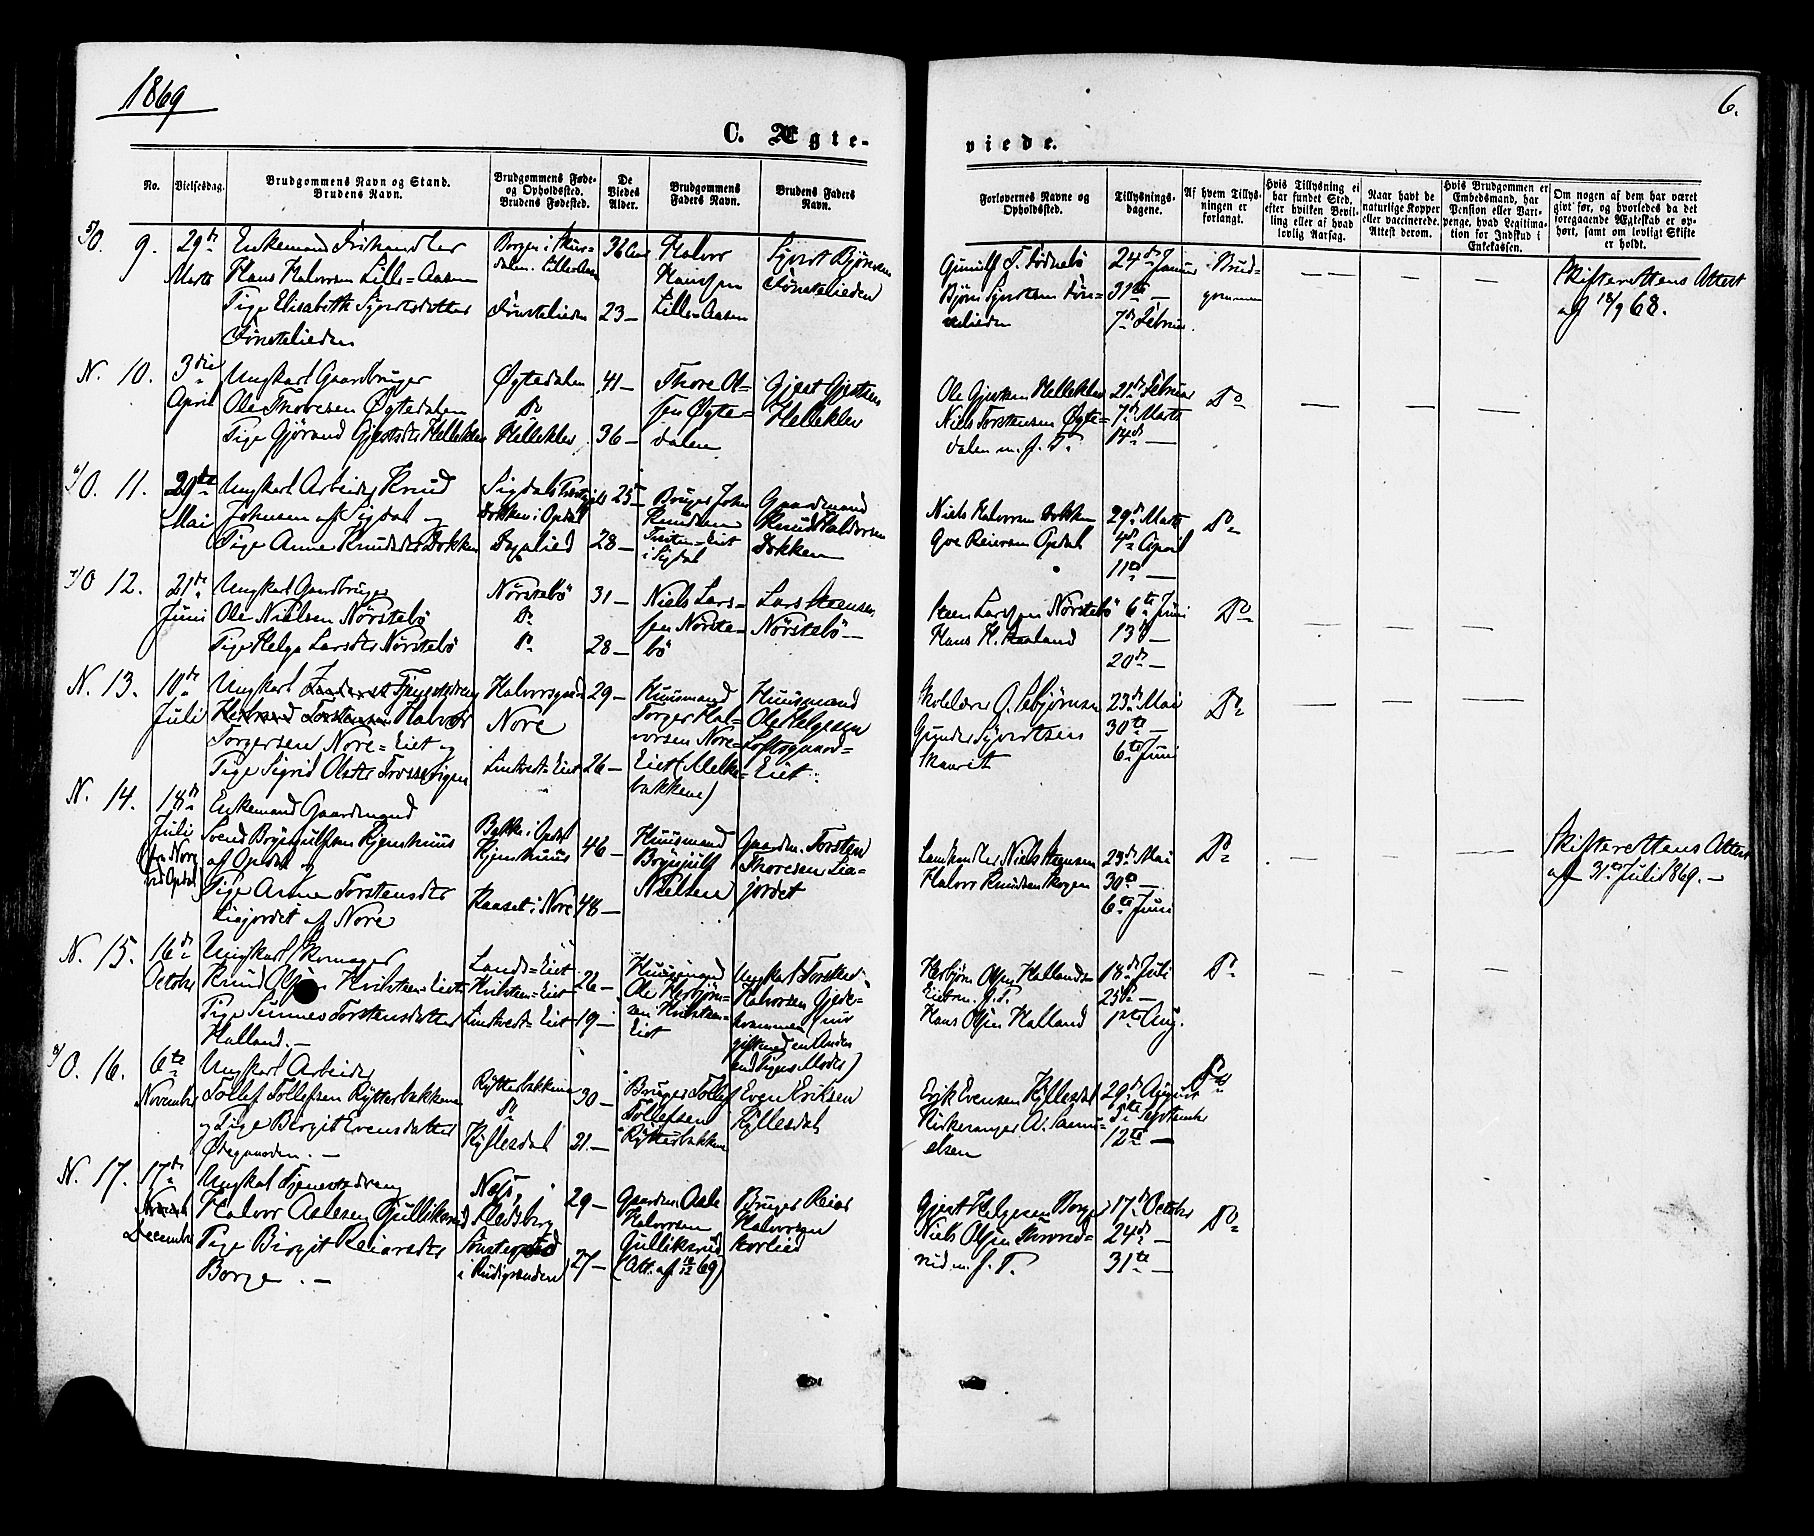 1869
6.
C. Ægte-
viede.
No.
Vielsesdag.
Brudgommens Navn og Stand.
Brudens Navn.
Brudgommens Føde-
og Opholdssted.
Brudens Fødested.
De
Viedes
Alder.
Brudgommens
Faders Navn.
Brudens Faders
Navn.
Forlovernes Navne og
Opholdssted.
Tillysnings-
dagene.
Af hvem Tillys-
ningen er
forlangt.
Hvis Tillysning ei
har fundet Sted,
efter hvilken Bevil-
ling eller af hvad
lovlig Aarsag.
Naar havt de
naturlige Kopper
eller vaccinerede.
Attest derom.
Hvis Brudgommen er
Embedsmand, har
Pension eller Vart-
penge, hvad Legitima-
tion for Indskud i
Enkekassen.
Om nogen af dem har været
gift før, og hvorledes da det
foregaaende Ægteskab er op-
hørt, samt om lovligt Skifte
er holdt.
O. 9.
29de
Marts
Enkemand Frihandler
Hans Halvorsen Lille-Aasen
Pige Elisabeth Syvertsdatter
Tønstelieden
36 Aar
Tønstelieden 23 —
Halvor
Hansen
Lille-Aasen
Syvert Bjørnsen
Tønstelieden
24de Januar
31te —
7de Februar
Brud-
gommen
— — —
Skifterettens Attest
af 18/9 68.
N. 10.
3die
April
Ungkarl Gaardbruger
Ole Thoresen Øgtedalen
Pige Gjørand Gjestsdtr Helleklev
Øgtedalen
Do
Helleklev
41 —
36 —
Thore Ol-
sen Øgte-
dalen
Gjest Gjestsen
Helleklev
Ole Gjestsen Helleklev
Niels Torstensen Øgte-
dalen m. f. P.
21de Februar
7de Marts
14de —
Do
— — —
O. 11.
29de
Mai
Ungkarl Arbeider Knud
Johnsen af Sigdal og
Pige Anne Knudsdtr Dokken
Dokken i Opdal
Dagalied
25 —
28 —
Bruger John
Knudsen
i Sigdal
Gaardmand
Knud Halvorsen
Dokken
Niels Halvorsen Dokken
Gve Reiersen Opdal
29de Marts
4de April
11te —
Do
O 12.
21de
Juni
Ungkarl Gaardbruger
Ole Nielsen Nørstebø
Pige Helga Larsdtr Nørstebø
Nørstebø
Do
Do
31 —
28 —
Niels Lars-
sen Nørste-
bø
Lars Steensen
Nørstebø —
Steen Larssen Nørstebø
Hans H. Haaland
6te Juni
13de —
20de —
Do
— — —
N. 13.
10de
Juli
Ungkarl Tjenestedreng
Halvor
Torgersen Nore-Eiet og
Pige Sigrid Olsdtr
Halvorsgaard
Nore
Lindvedt-Eiet
29 —
26 —
Huusmand
Torger Hal-
vorsen Nore-
Eiet (Melke-
bakkene)
Huusmand
Ole Helgesen
Loftsgaard-
Eiet
Skolelærer O. Esbjørnsen
Gunder Syvertsen
Skaarit
23de Mai
30te —
6te Juni
Do
— — —
N. 14.
18de
Juli
(fra Nore
ved Opdal)
Enkemand Gaardmand
Svend Brynjulfsen Kjenshuus
af Opdal og
Pige Anne Torstensdtr
Liajordet af Nore
Bakke i Opdal
Kjenshuus
Raaset i Nore
46 —
48 —
Huusmand
Brynjulf
Nielsen
Gaardm. Torsten
Thoresen Lia-
jordet
Landhandler Niels Steensen
Halvor Knudsen Skogen
23de Mai
30te —
6te Juni
Do
— — —
Skifterettens Attest
af 31te Juli 1869. —
N. 15.
16de
October
Ungkarl Skomager
Knud Olsen Kvilsteen-Eiet
Pige Sunneo Torstensdatter
Halland. —
Lands-Eiet
Kvilsteen-Eiet
Lindvedt-Eiet
26 —
19 —
Huusmand
Ole Herbjørn-
sen Kvilsteen-
Eiet
Ungkarl Torsten
Halvorsen Gjede-
kammen (nu
gift med en Anden
end Pigens Moder)
Herbjørn Olsen Halland-
Eiet m. f. P.
Hans Olsen Halland
18de Juli
25de —
1ste Aug.
Do
— — —
O. 16.
6te
November
Ungkarl Arbeider
Tollef Tollefsen Rytterbakken
og Pige Birgit Evensdatter
Øvegaarden. —
Rytterbakken
Do
Kyllesdal
30 —
21 —
Bruger Tollef
Tollefsen
Rytterbakken
Even Eriksen
Kyllesdal
Erik Evensen Kyllesdal
Kirkesanger A. Samu-
elsen
29de August
5te September
12te —
Do
N. 17.
17de
December
Ungkarl Tjenestedreng
Halvor Aslesen Gulliksrud
Pige Birgit Reiarsdtr
Borge. —
Næs,
Flesberg
29 —
27 —
Gaardm. Asle
Halvorsen
Gulliksrud
(Att. af 12/12 69)
Bruger Reiar
Halvorsen
Storlied
Gjest Helgesen Borge
Niels Olsen Skovrud-
rud m. f. P.
17de October
24de —
31te —
Do